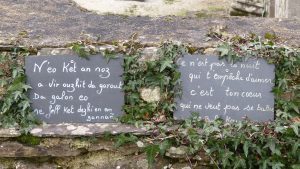 N'eo Ket an noz
a vir ouzhit da garout
Da galon eo
ne
Ket
an
Ce n'est pas la nuit
qui t'empêche d'aimer
c'est ton coeur
qui ne veut pas se